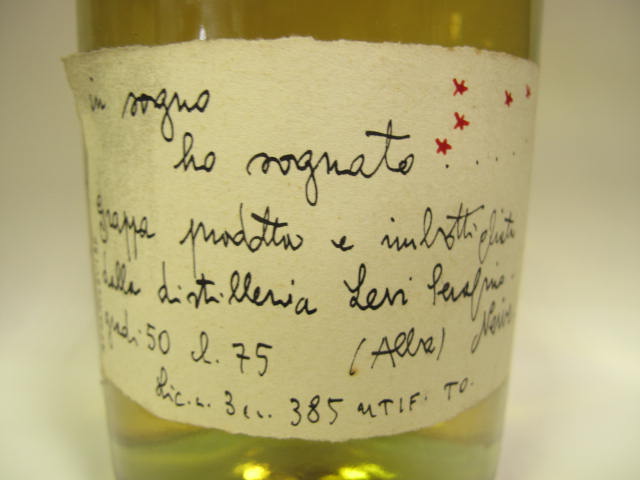 in sogno
ho sognato .....
grappa prodotta e imbottigliata
dalla distilleria Levi Serafino
gradi 50 l. 75 (Alba) Neive
Lic. n. 3 e n. 385 UTIF. TO.